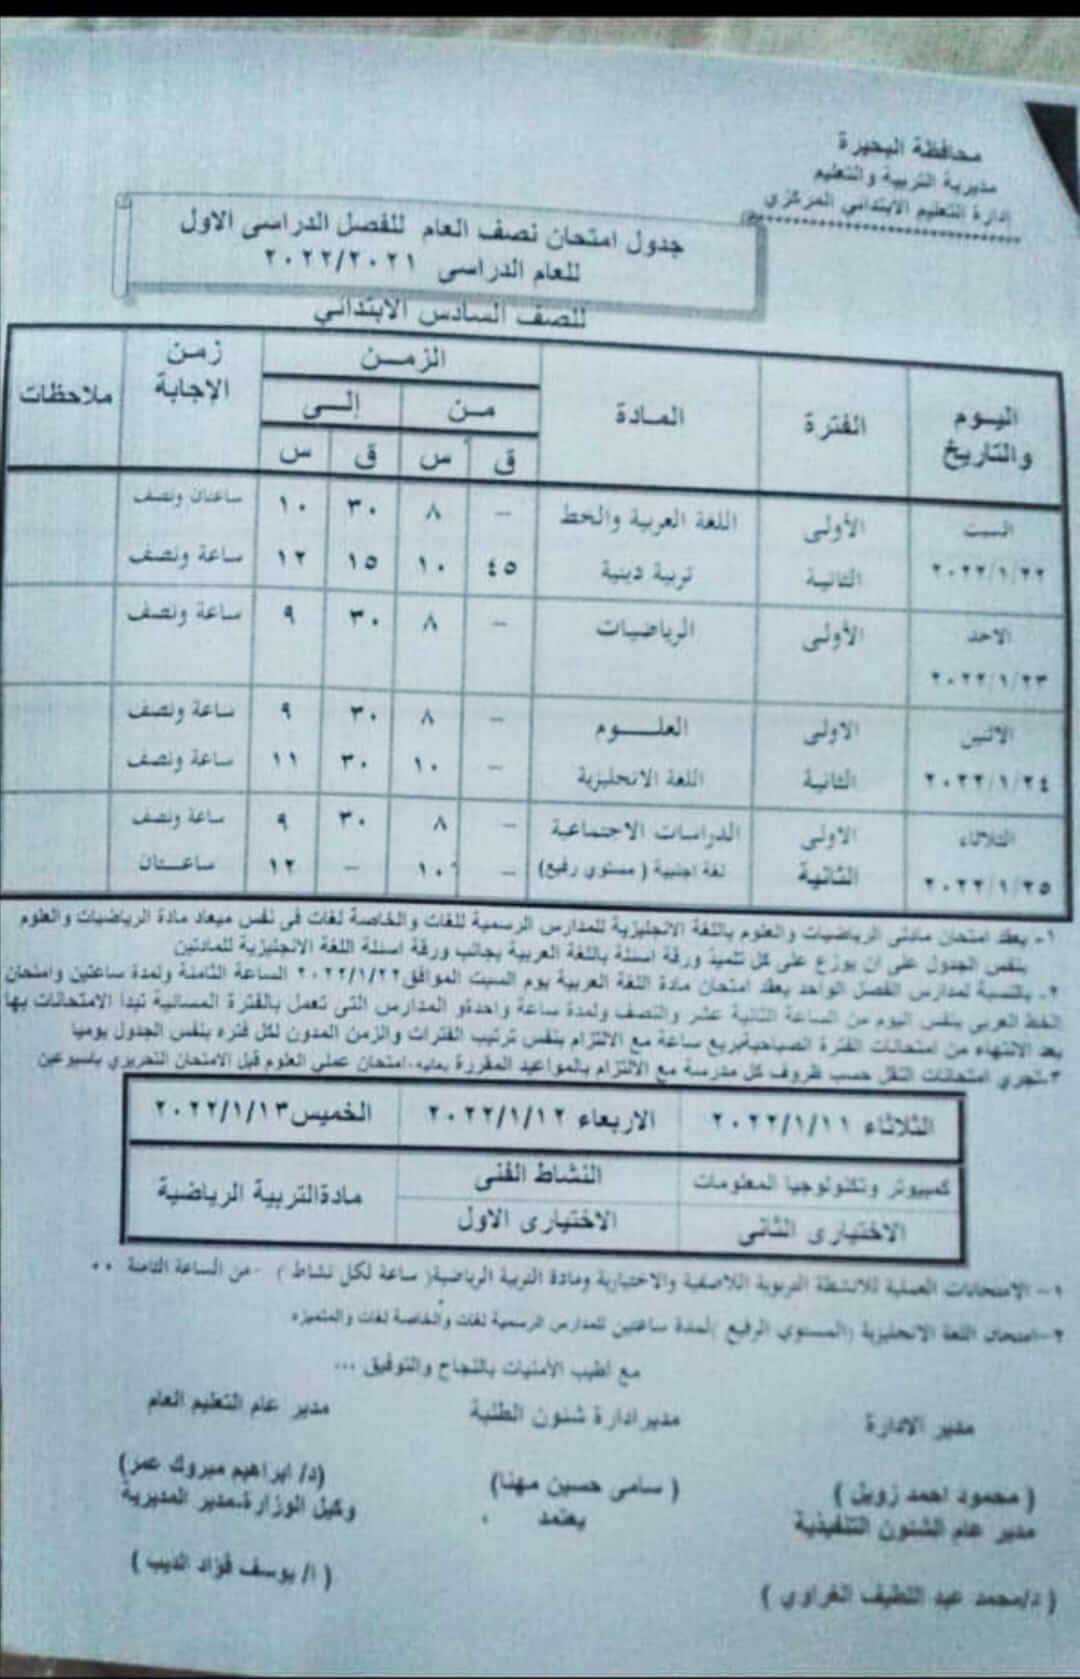 محافظة البحيرة
مديرية التربية والتعليم
إدارة التعليم الابتدائي المركزي
جدول امتحان نصف العام للفصل الدراسى الاول
للعام الدراسى ٢٠٢٢/٢٠٢١
للصف السادس الابتدائي
اليـوم والتاريخ الفترة المـادة الزمـن زمـن الإجابة ملاحظات
مـن إلـى
ق س ق س
السبت الأولى اللغة العربية والخط – ٨ ٣٠ ١٠ ساعتان ونصف
٢٠٢٢/١/٢٢ الثانية تربية دينية ٤٥ ١٠ ١٥ ١٢ ساعة ونصف
الاحد الأولى الرياضيات – ٨ ٣٠ ٩ ساعة ونصف
٢٠٢٢/١/٢٣
الاثنين الاولى العلـــوم – ٨ ٣٠ ٩ ساعة ونصف
٢٠٢٢/١/٢٤ الثانية اللغة الانجليزية – ١٠ ٣٠ ١١ ساعة ونصف
الثلاثاء الاولى الدراسات الاجتماعية – ٨ ٣٠ ٩ ساعة ونصف
٢٠٢٢/١/٢٥ الثانية لغة اجنبية ( مستوي رفيع) – ١٠ – ١٢ ساعـــتان
١- يعقد امتحان مادتى الرياضيات والعلوم باللغة الانجليزية للمدارس الرسمية للغات والخاصة لغات فى نفس ميعاد مادة الرياضيات والعلوم
بنفس الجدول على ان يوزع على كل تلميذ ورقة اسئلة باللغة العربية بجانب ورقة اسئلة اللغة الانجليزية للمادتين
٢- بالنسبة لمدارس الفصل الواحد يعقد امتحان مادة اللغة العربية يوم السبت الموافق٢٠٢٢/١/٢٢ الساعة الثامنة ولمدة ساعتين وامتحان
الخط العربى بنفس اليوم من الساعة الثانية عشر والنصف ولمدة ساعة واحدةو المدارس التى تعمل بالفترة المسائية تبدأ الامتحانات بها
بعد الانتهاء من امتحانات الفترة الصباحيةبربع ساعة مع الالتزام بنفس ترتيب الفترات والزمن المدون لكل فتره بنفس الجدول يوميا
٣-تجري امتحانات النقل حسب ظروف كل مدرسة مع الالتزام بالمواعيد المقررة امتحان عملى العلوم قبل الامتحان التحريري باسبوعين
الثلاثاء ٢٠٢٢/١/١١ الاربعاء ٢٠٢٢/١/١٢ الخميس٢٠٢٢/١/١٣
كمبيوتر وتكنولوجيا المعلومات النشاط الفنى مادةالتربية الرياضية
الاختيارى الثانى الاختيارى الاول
١- الامتحانات العملية للانشطة التربوية اللاصفية والاختيارية ومادة التربية الرياضية( ساعة لكل نشاط ) من الساعة الثامنة ..
٢-امتحان اللغة الانجليزية (المستوي الرفيع )لمدة ساعتين للمدارس الرسمية لغات والخاصة لغات والمتميزه
مع أطيب الأمنيات بالنجاح والتوفيق ...
مدير الادارة مديرادارة شئون الطلبة مدير عام التعليم العام
( محمود احمد زويل ) ( سامى حسين مهنا) (د/ ابراهيم مبروك عمر)
مدير عام الشئون التنفيذية يعتمد وكيل الوزارة-مدير المديرية
( د/محمد عبد اللطيف الغراوي ) ( ا/ يوسف فؤاد الديب )